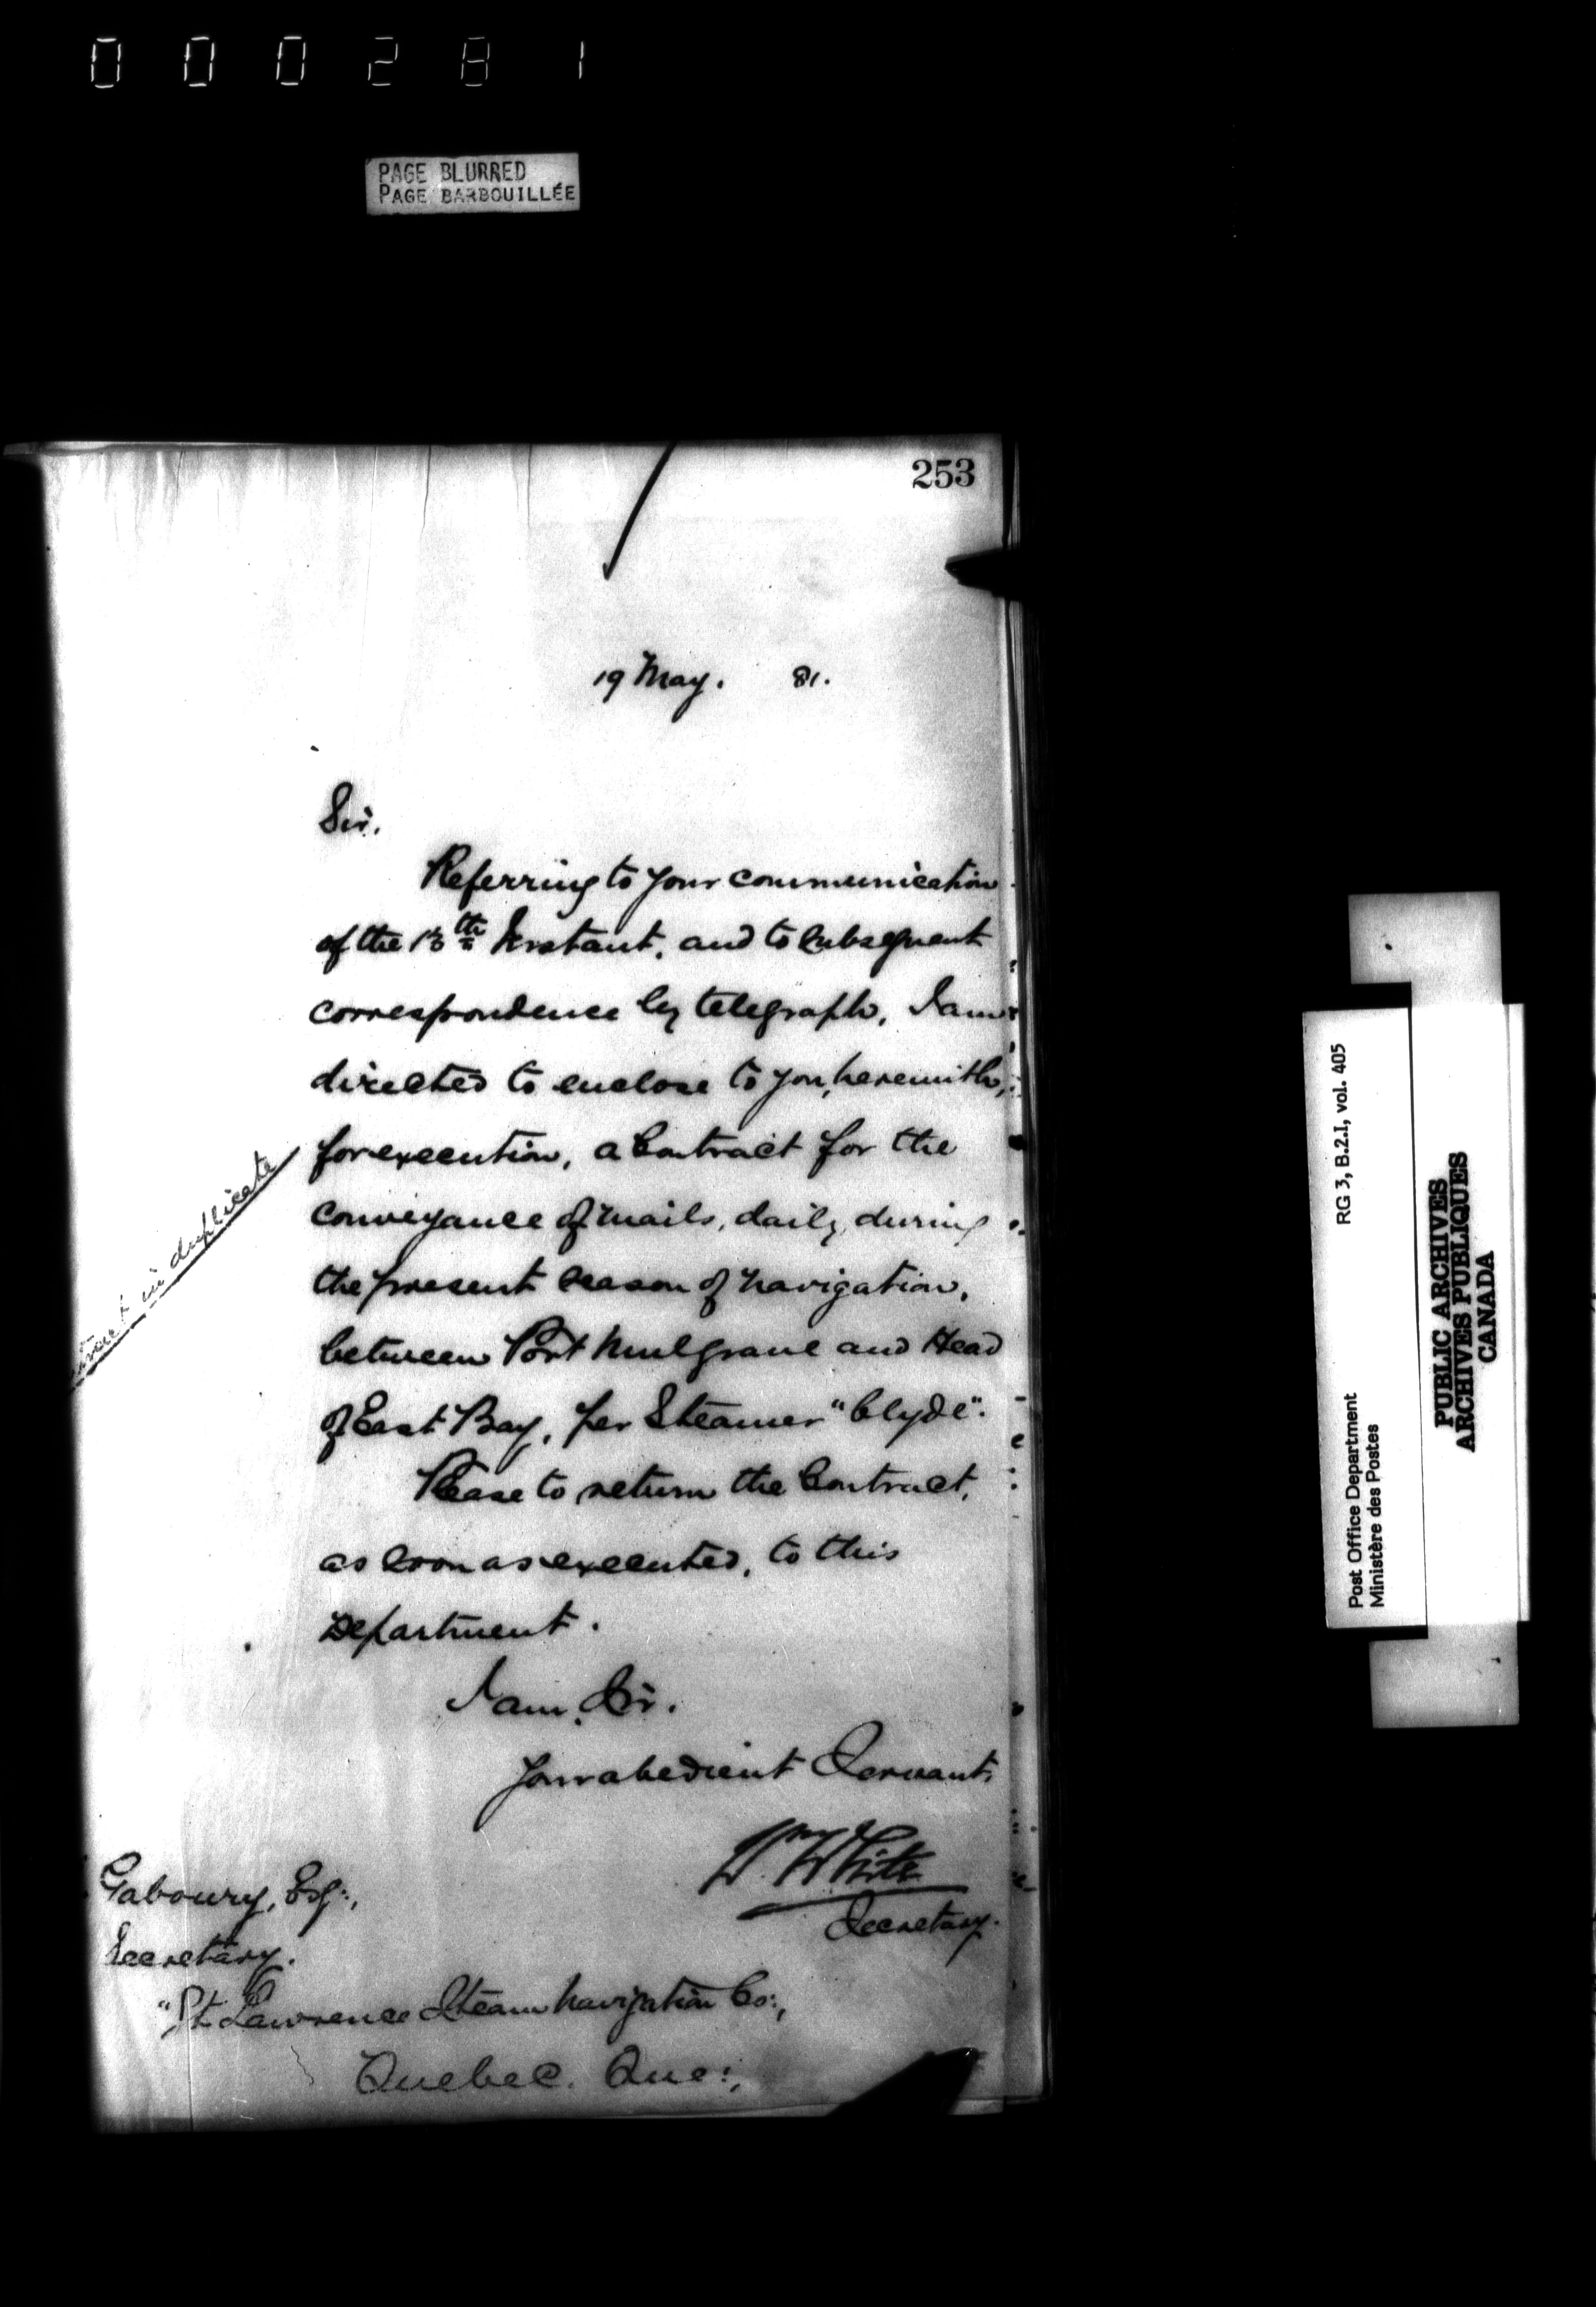 000281
PAGE BLURRED
PAGE BARBOUILLÉE
253
19 May. 81.
Sir.
Referring to your communication
of the 13th Instant, and to subsequent
correspondence by telegraph, I am
directed to enclose to you, herewith,
for execution, a Contract for the
conveyance of mails, daily, during
the present season of navigation,
between Port Mulgrave and Head
of East Bay, per Steamer "Clyde".
Please to return the Contract,
as soon as executed, to this
Department.
I am, Sir.
Your obedient Servant,
Wm White
Secretary.
in duplicate
Gaboury, Esq:,
Secretary.
"St. Lawrence Steam Navigation Co:,
Quebec. Que:,
Post Office Department
Ministère des Postes
RG 3, B.2.I, vol. 405
PUBLIC ARCHIVES
ARCHIVES PUBLIQUES
CANADA